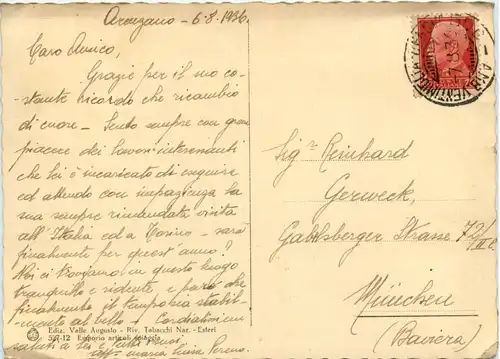 Arenzano - 6.8.1936.
Caro Amico,
Grazie per il suo co-
stante ricordo che ricambio
di cuore - Sento sempre con gran
piacere dei lavori interessanti
che Lei è incaricato di eseguire
ed attendo con impazienza la
sua sempre rimandata visita
all'Italia ed a Torino - sarà
finalmente per quest'anno?
Noi ci troviamo in questo luogo
tranquillo e ridente e pare che
finalmente il tempo sia stabil-
mente al bello - Cordialissimi
saluti a Lei e
Maria Luisa
Ediz. Valle Augusto - Riv. Tabacchi Naz. - Esteri
5/7-12 Emporio articoli spiaggia
Sigr Reinhard
Gerweck,
Gabelsberger Strasse 72/III
München
(Baviera)